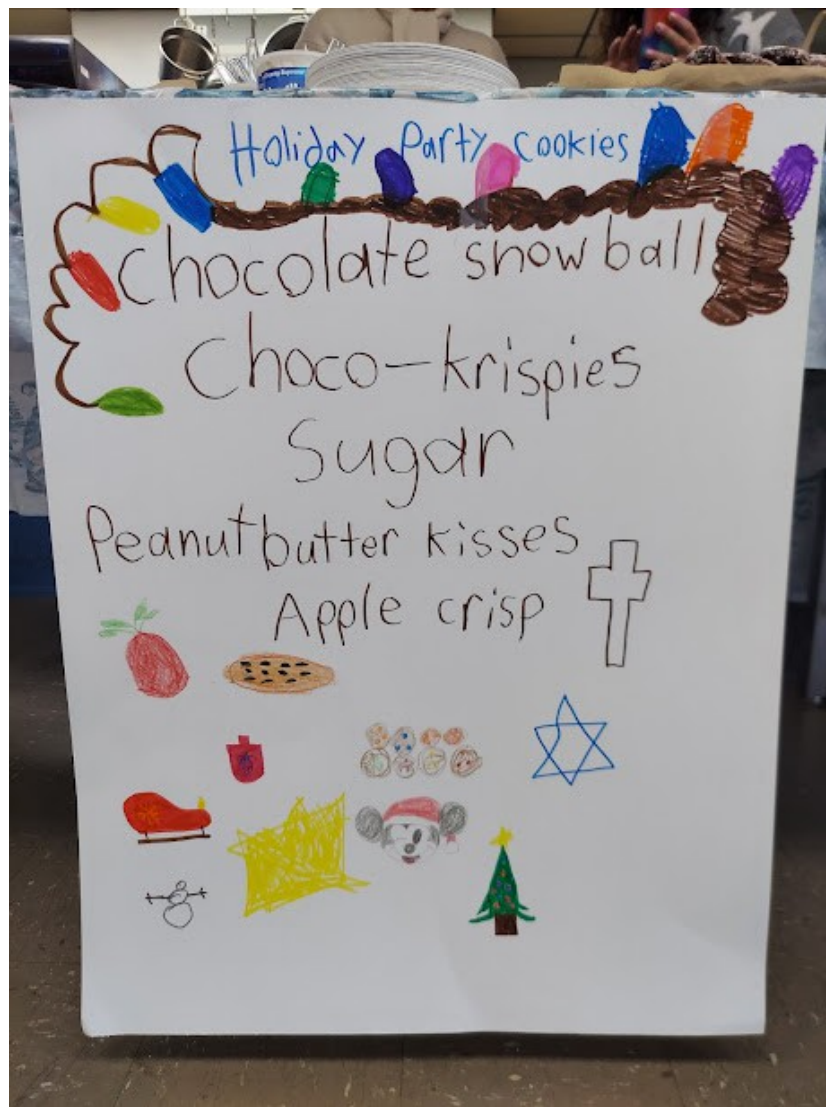 Holiday Party Cookies
Chocolate snowball
Choco-krispies
Sugar
Peanut butter kisses
Apple crisp